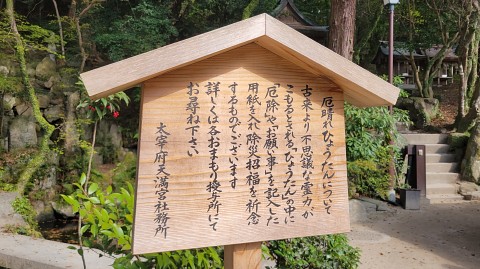 厄晴れひょうたんについて
古来より不思議な霊力が
こもるとされる「ひょうたん」の中に
「厄除」や「お願い事」を記入した
用紙を入れ災除招福を祈念
するものでございます
詳しくは各おまもり授与所にて
お尋ね下さい
太宰府天満宮社務所